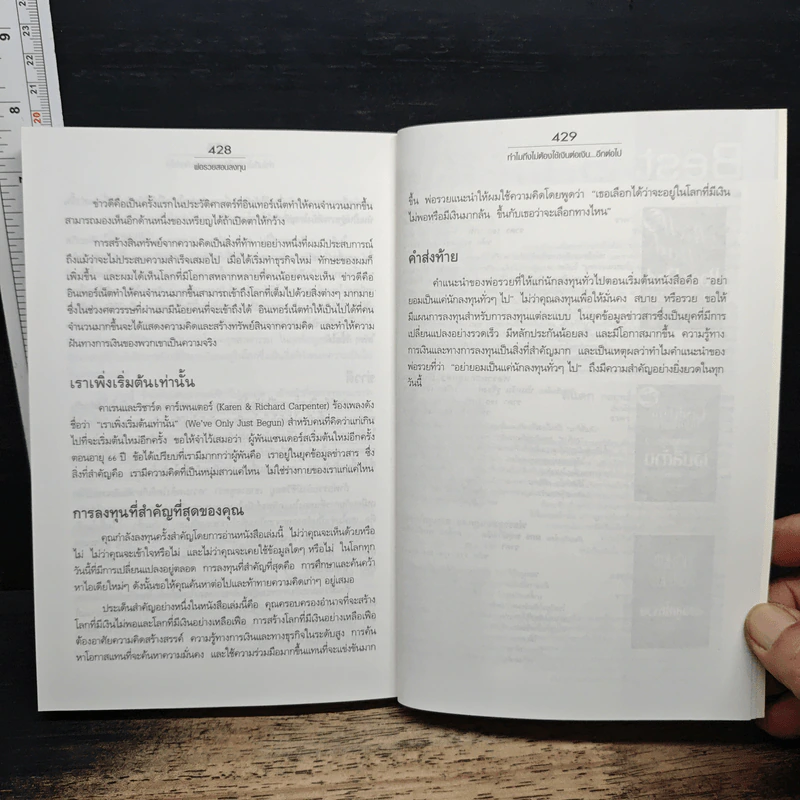 428
พ่อรวยสอนลงทุน
ข่าวดีคือเป็นครั้งแรกในประวัติศาสตร์ที่อินเทอร์เน็ตทำให้คนจำนวนมากขึ้น
สามารถมองเห็นอีกด้านหนึ่งของเหรียญได้ถ้าเปิดตาให้กว้าง
การสร้างสินทรัพย์จากความคิดเป็นสิ่งที่ท้าทายอย่างหนึ่งที่ผมมีประสบการณ์
ถึงแม้ว่าจะไม่ประสบความสำเร็จเสมอไป เมื่อได้เริ่มทำธุรกิจใหม่ ทักษะของผมก็
เพิ่มขึ้น และผมได้เห็นโลกที่มีโอกาสหลากหลายที่คนน้อยคนจะเห็น ข่าวดีคือ
อินเทอร์เน็ตทำให้คนจำนวนมากขึ้นสามารถเข้าถึงโลกที่เต็มไปด้วยสิ่งต่างๆ มากมาย
ซึ่งในช่วงศตวรรษที่ผ่านมามีน้อยคนที่จะเข้าถึงได้ อินเทอร์เน็ตทำให้เป็นไปได้ที่คน
จำนวนมากขึ้นจะได้แสดงความคิดและสร้างทรัพย์สินจากความคิด และทำให้ความ
ฝันทางการเงินของพวกเขาเป็นความจริง
เราเพิ่งเริ่มต้นเท่านั้น
คาเรนและริชาร์ด คาร์เพนเตอร์ (Karen & Richard Carpenter) ร้องเพลงดัง
ชื่อว่า "เราเพิ่งเริ่มต้นเท่านั้น" (We've Only Just Begun) สำหรับคนที่คิดว่าแก่เกิน
ไปที่จะเริ่มต้นใหม่อีกครั้ง ขอให้จำไว้เสมอว่า ผู้พันแซนเดอร์สเริ่มต้นใหม่อีกครั้ง
ตอนอายุ 66 ปี ข้อได้เปรียบที่เรามีมากกว่าผู้พันคือ เราอยู่ในยุคข้อมูลข่าวสาร ซึ่ง
สิ่งที่สำคัญคือ เรามีความคิดที่เป็นหนุ่มสาวแค่ไหน ไม่ใช่ร่างกายของเราแก่แค่ไหน
การลงทุนที่สำคัญที่สุดของคุณ
คุณกำลังลงทุนครั้งสำคัญโดยการอ่านหนังสือเล่มนี้ ไม่ว่าคุณจะเห็นด้วยหรือ
ไม่ ไม่ว่าคุณจะเข้าใจหรือไม่ และไม่ว่าคุณจะเคยใช้ข้อมูลใดๆ หรือไม่ ในโลกทุก
วันนี้ที่มีการเปลี่ยนแปลงอยู่ตลอด การลงทุนที่สำคัญที่สุดคือ การศึกษาและค้นคว้า
หาไอเดียใหม่ๆ ดังนั้นขอให้คุณค้นหาต่อไปและท้าทายความคิดเก่าๆ อยู่เสมอ
ประเด็นสำคัญอย่างหนึ่งในหนังสือเล่มนี้คือ คุณครอบครองอำนาจที่จะสร้าง
โลกที่มีเงินไม่พอและโลกที่มีเงินอย่างเหลือเฟือ การสร้างโลกที่มีเงินอย่างเหลือเฟือ
ต้องอาศัยความคิดสร้างสรรค์ ความรู้ทางการเงินและทางธุรกิจในระดับสูง การค้น
หาโอกาสแทนที่จะค้นหาความมั่นคง และใช้ความร่วมมือมากขึ้นแทนที่จะแข่งขันมาก
429
ทำไมถึงไม่ต้องใช้เงินต่อเงิน...อีกต่อไป
ขึ้น พ่อรวยแนะนำให้ผมใช้ความคิดโดยพูดว่า "เธอเลือกได้ว่าจะอยู่ในโลกที่มีเงิน
ไม่พอหรือมีเงินมากล้น ขึ้นกับเธอว่าจะเลือกทางไหน"
คำส่งท้าย
คำแนะนำของพ่อรวยที่ให้แก่นักลงทุนทั่วไปตอนเริ่มต้นหนังสือคือ "อย่า
ยอมเป็นแค่นักลงทุนทั่วๆ ไป" ไม่ว่าคุณลงทุนเพื่อให้มั่นคง สบาย หรือรวย ขอให้
มีแผนการลงทุนสำหรับการลงทุนแต่ละแบบ ในยุคข้อมูลข่าวสารซึ่งเป็นยุคที่มีการ
เปลี่ยนแปลงอย่างรวดเร็ว มีหลักประกันน้อยลง และมีโอกาสมากขึ้น ความรู้ทาง
การเงินและทางการลงทุนเป็นสิ่งที่สำคัญมาก และเป็นเหตุผลว่าทำไมคำแนะนำของ
พ่อรวยที่ว่า "อย่ายอมเป็นแค่นักลงทุนทั่วๆ ไป" ถึงมีความสำคัญอย่างยิ่งยวดในทุก
วันนี้
9
8
23
22
21
20
19
18
17